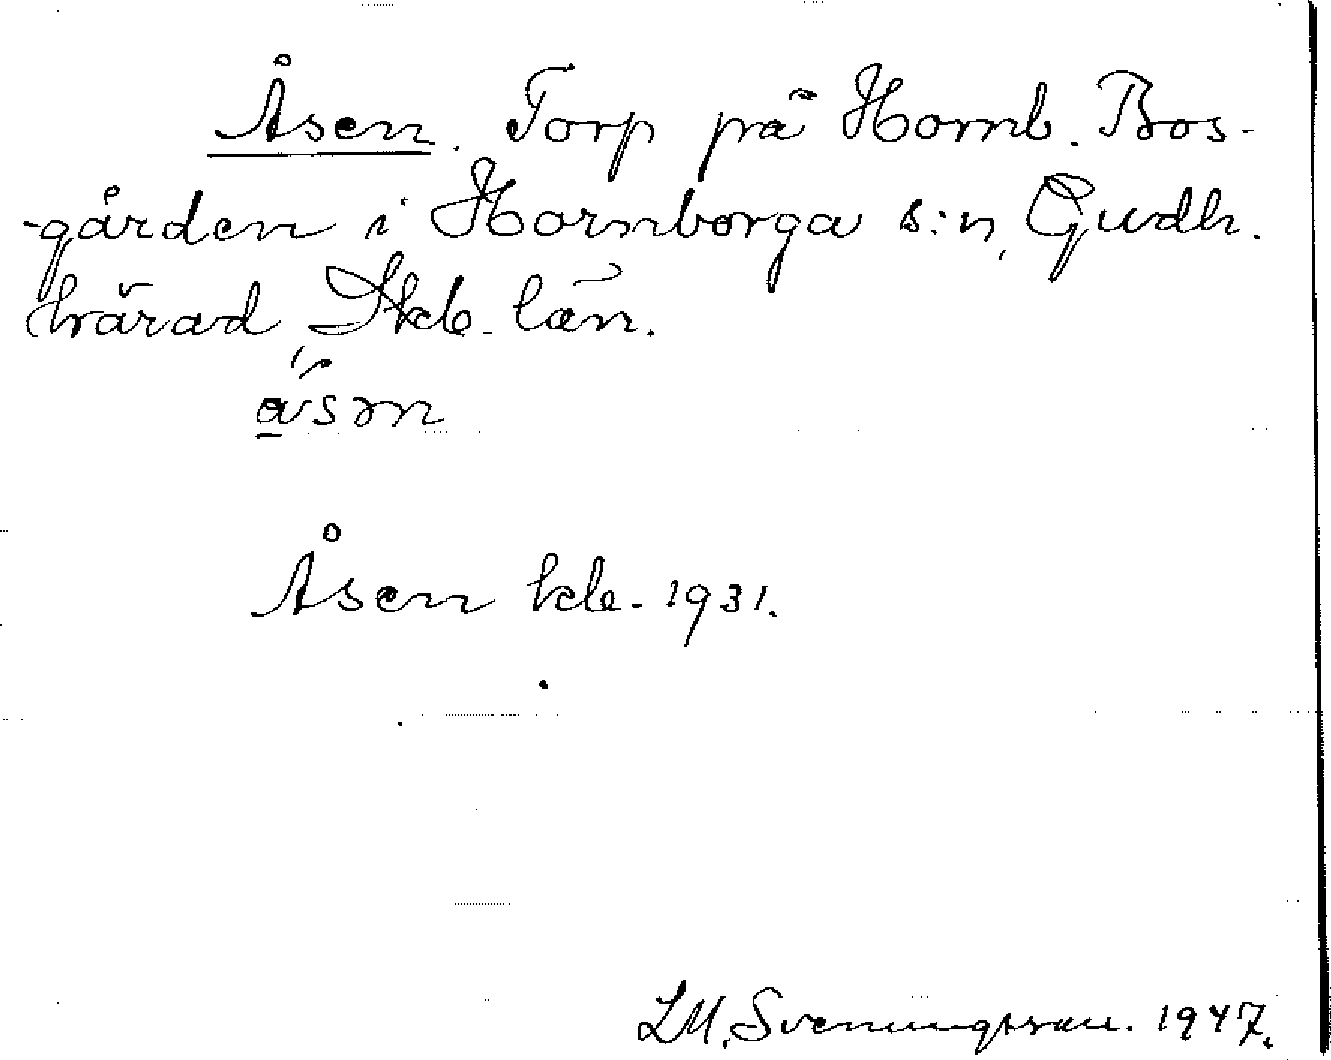 Åsen. Torp på Hornb. Bos-
-gården i Hornborga s:n, Gudh.
härad, Skb. län.
åsm
Åsen kb. 1931.
LM. Svenungsson. 1947.